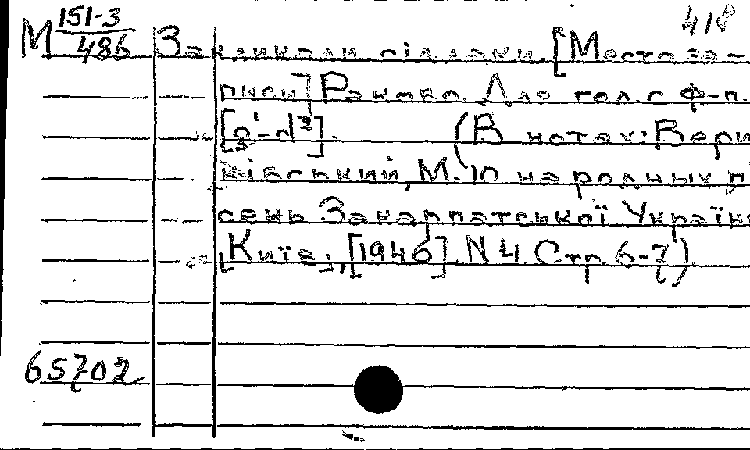 418
М 151-3/486 Закликали сіллячи [Место за-
писи] Рахово. Для гол. с ф-п.
[d'-d²]. (В нотах: Вери
ківський, М. 10 народных п
сень Закарпатської Україн
[Київ], [1946] N 4 Стр. 6-7)
65702